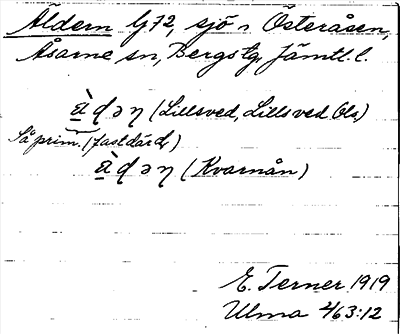 Äldern G72, sjö i Österåsen,
Åsarne sn, Bergs tg, Jämtl. l.
(Lillsved, Lillsved Ols)
Så prim. (fast
(Kvarnån)
E. Terner 1919
Ulma 2/63:12